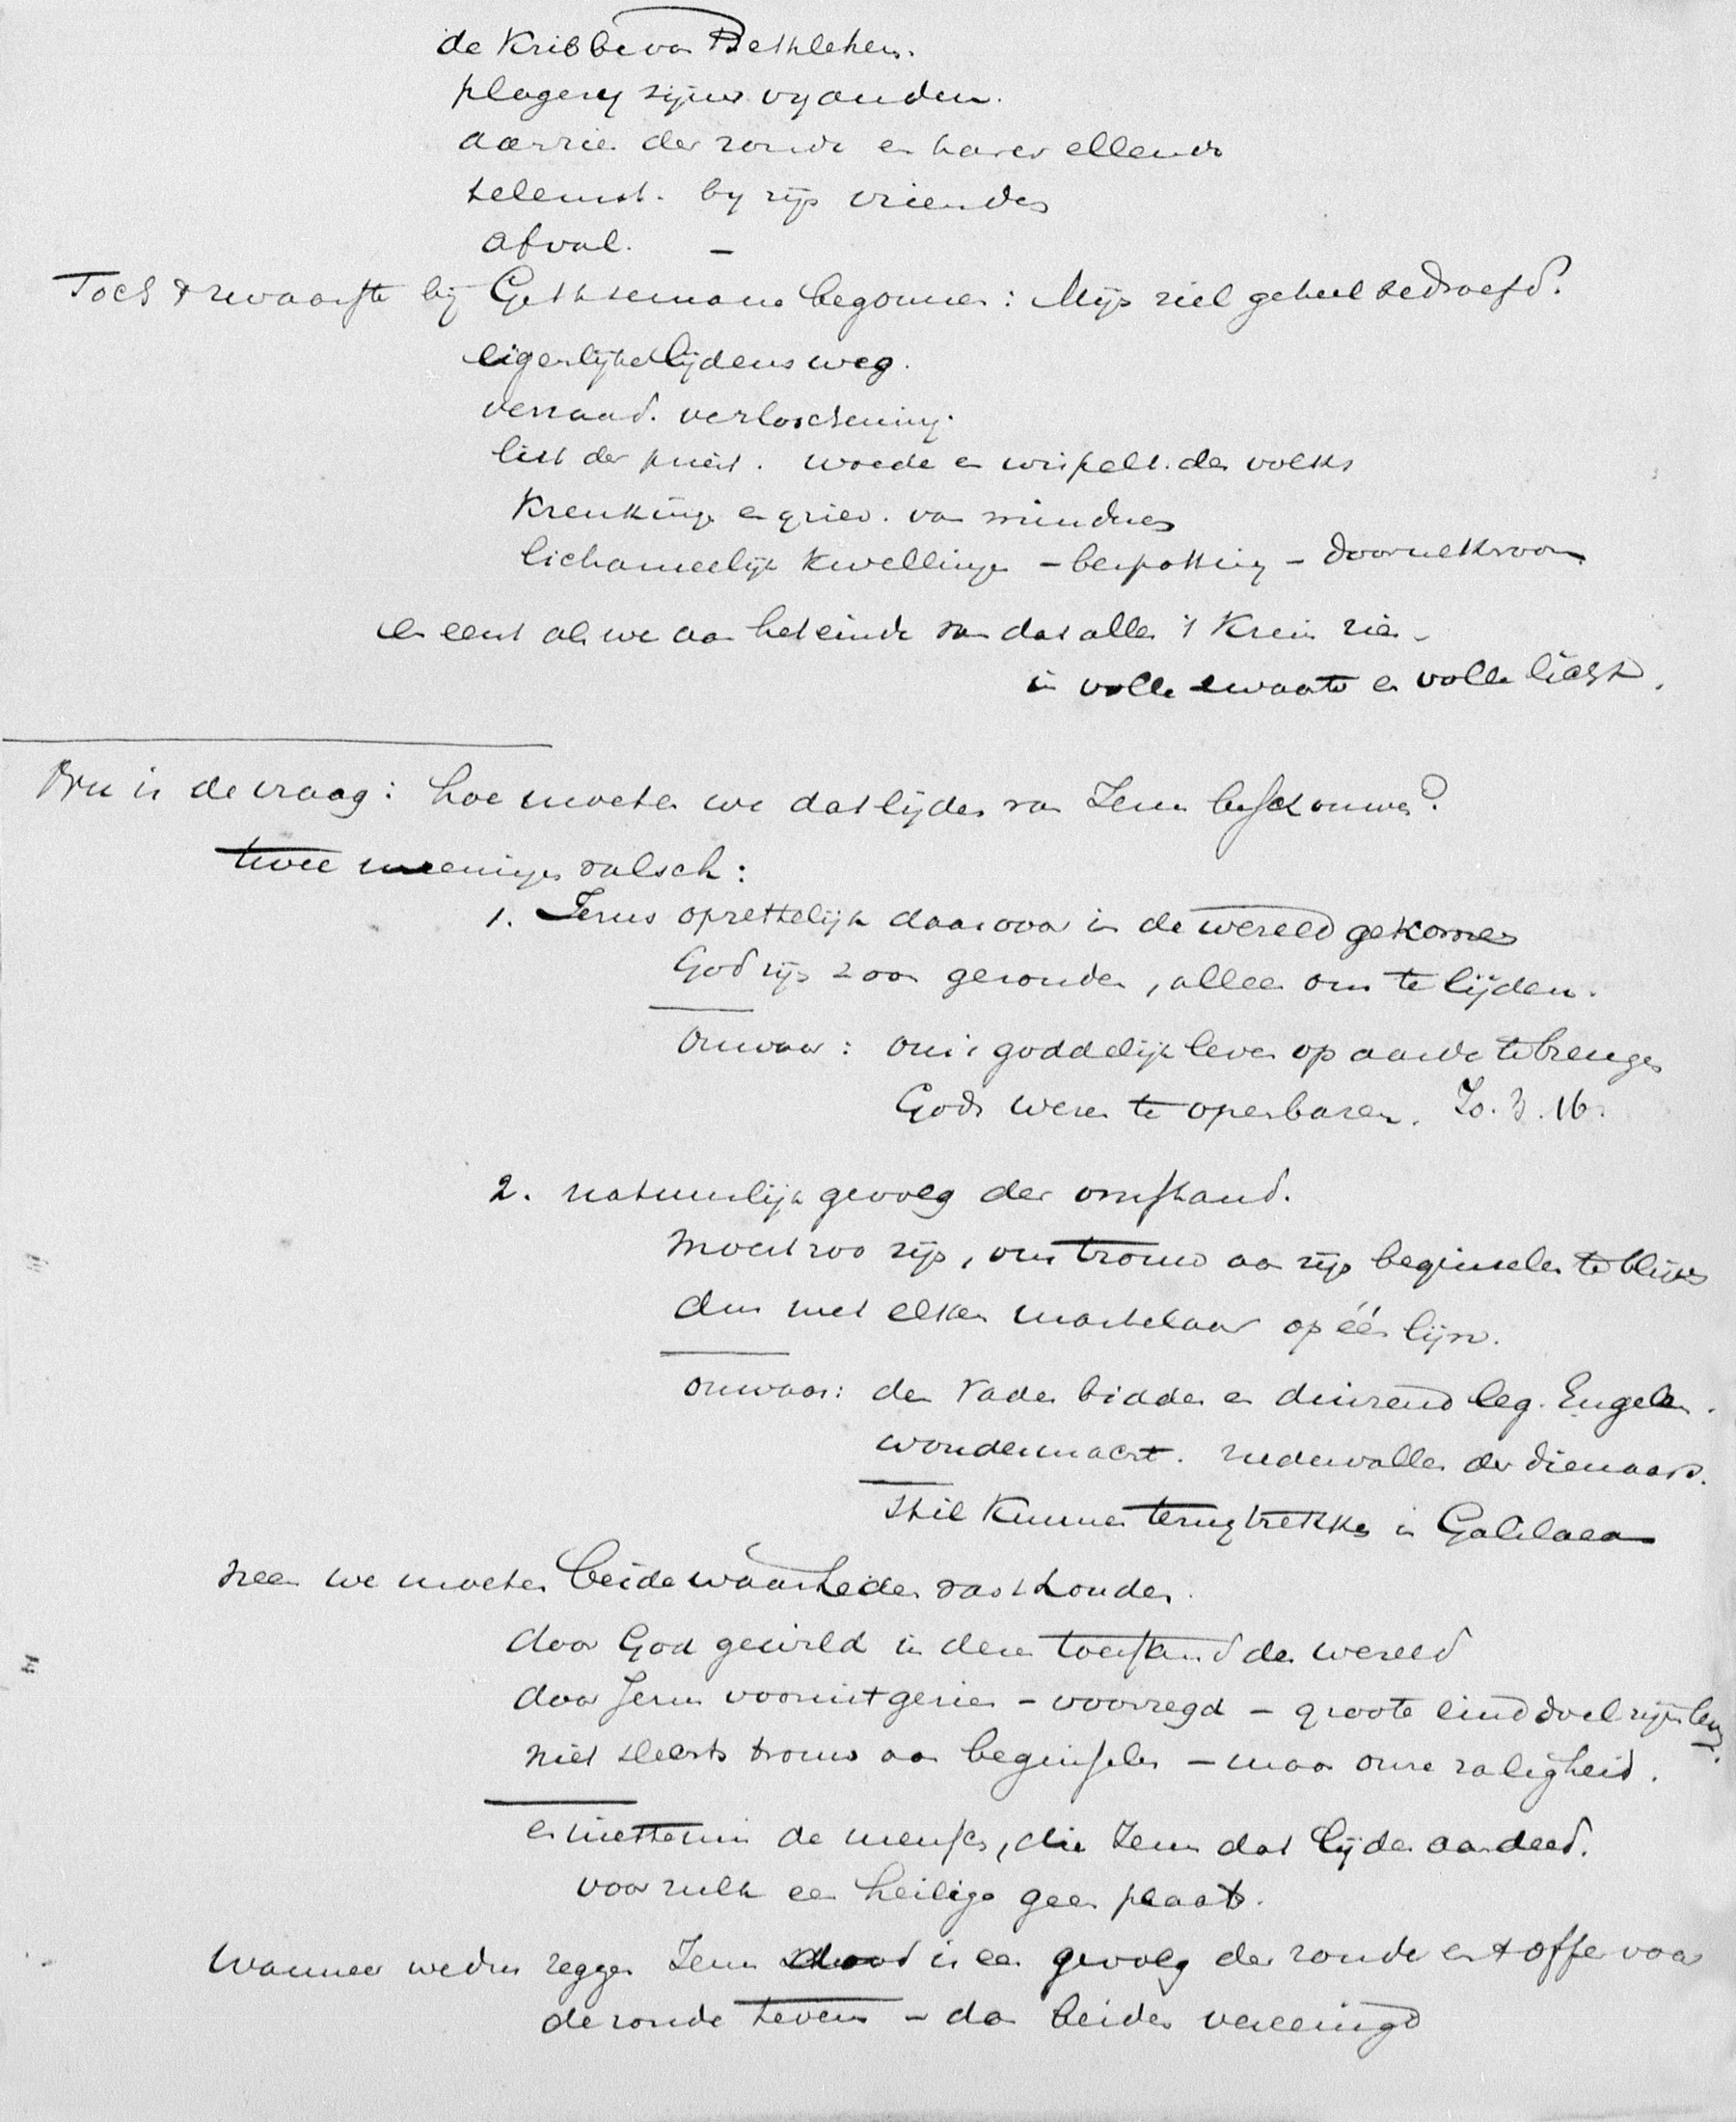 de Kribbe van Bethlehem.
plagerij zijner vyanden.
aanzien der zonde en harer ellende
teleurst. by zijn vrienden
afval. —
Toch 't zwaarste bij Gethsemane begonnen: Mijn ziel geheel bedroefd.
eigenlijke lijdensweg.
verraad. verloochening.
list der priest. woede en wispelt. des volks
Krenking en griev. van minderen
lichamelijke Kwellingen – bespotting – doornekroon
en eerst als we aan het einde van dat alles 't Kruis zien –
in volle zwaarte en volle licht.
Nu is de vraag: hoe moeten we dat lijden van Jezus beschouwen?
twee meeningen valsch:
1. Jezus opzettelijk daarvoor in de wereld gekomen
God zijn zoon gezonden, alleen om te lijden.
onwaar: om 't goddelijk leven op aarde te brengen
Gods wezen te openbaren. Jo. 3. 16.
2. natuurlijk gevolg der omstand.
moest zoo zijn, om trouw aan zijn beginselen te blijven
dus met elken martelaar op één lijn.
onwaar: den Vader bidden en duizend leg. Engelen.
wondermacht. nedervallen der dienaars.
stil Kunnen terugtrekken in Galilaea
neen we moeten beide waarheden vasthouden.
door God gewild in dezen toestand der wereld
door Jezus vooruitgezien – voorzegd – groote einddoel zijns lev.
niet slechts trouw aan beginselen – maar onze zaligheid.
en niettemin de menschen, die Jezus dat lijden aandeed.
voor zulk een heilige geen plaats.
Wanneer we dus zeggen Jezus dood is een gevolg der zonde en 't offer voor
de zonde tevens – dan beiden vereenigd